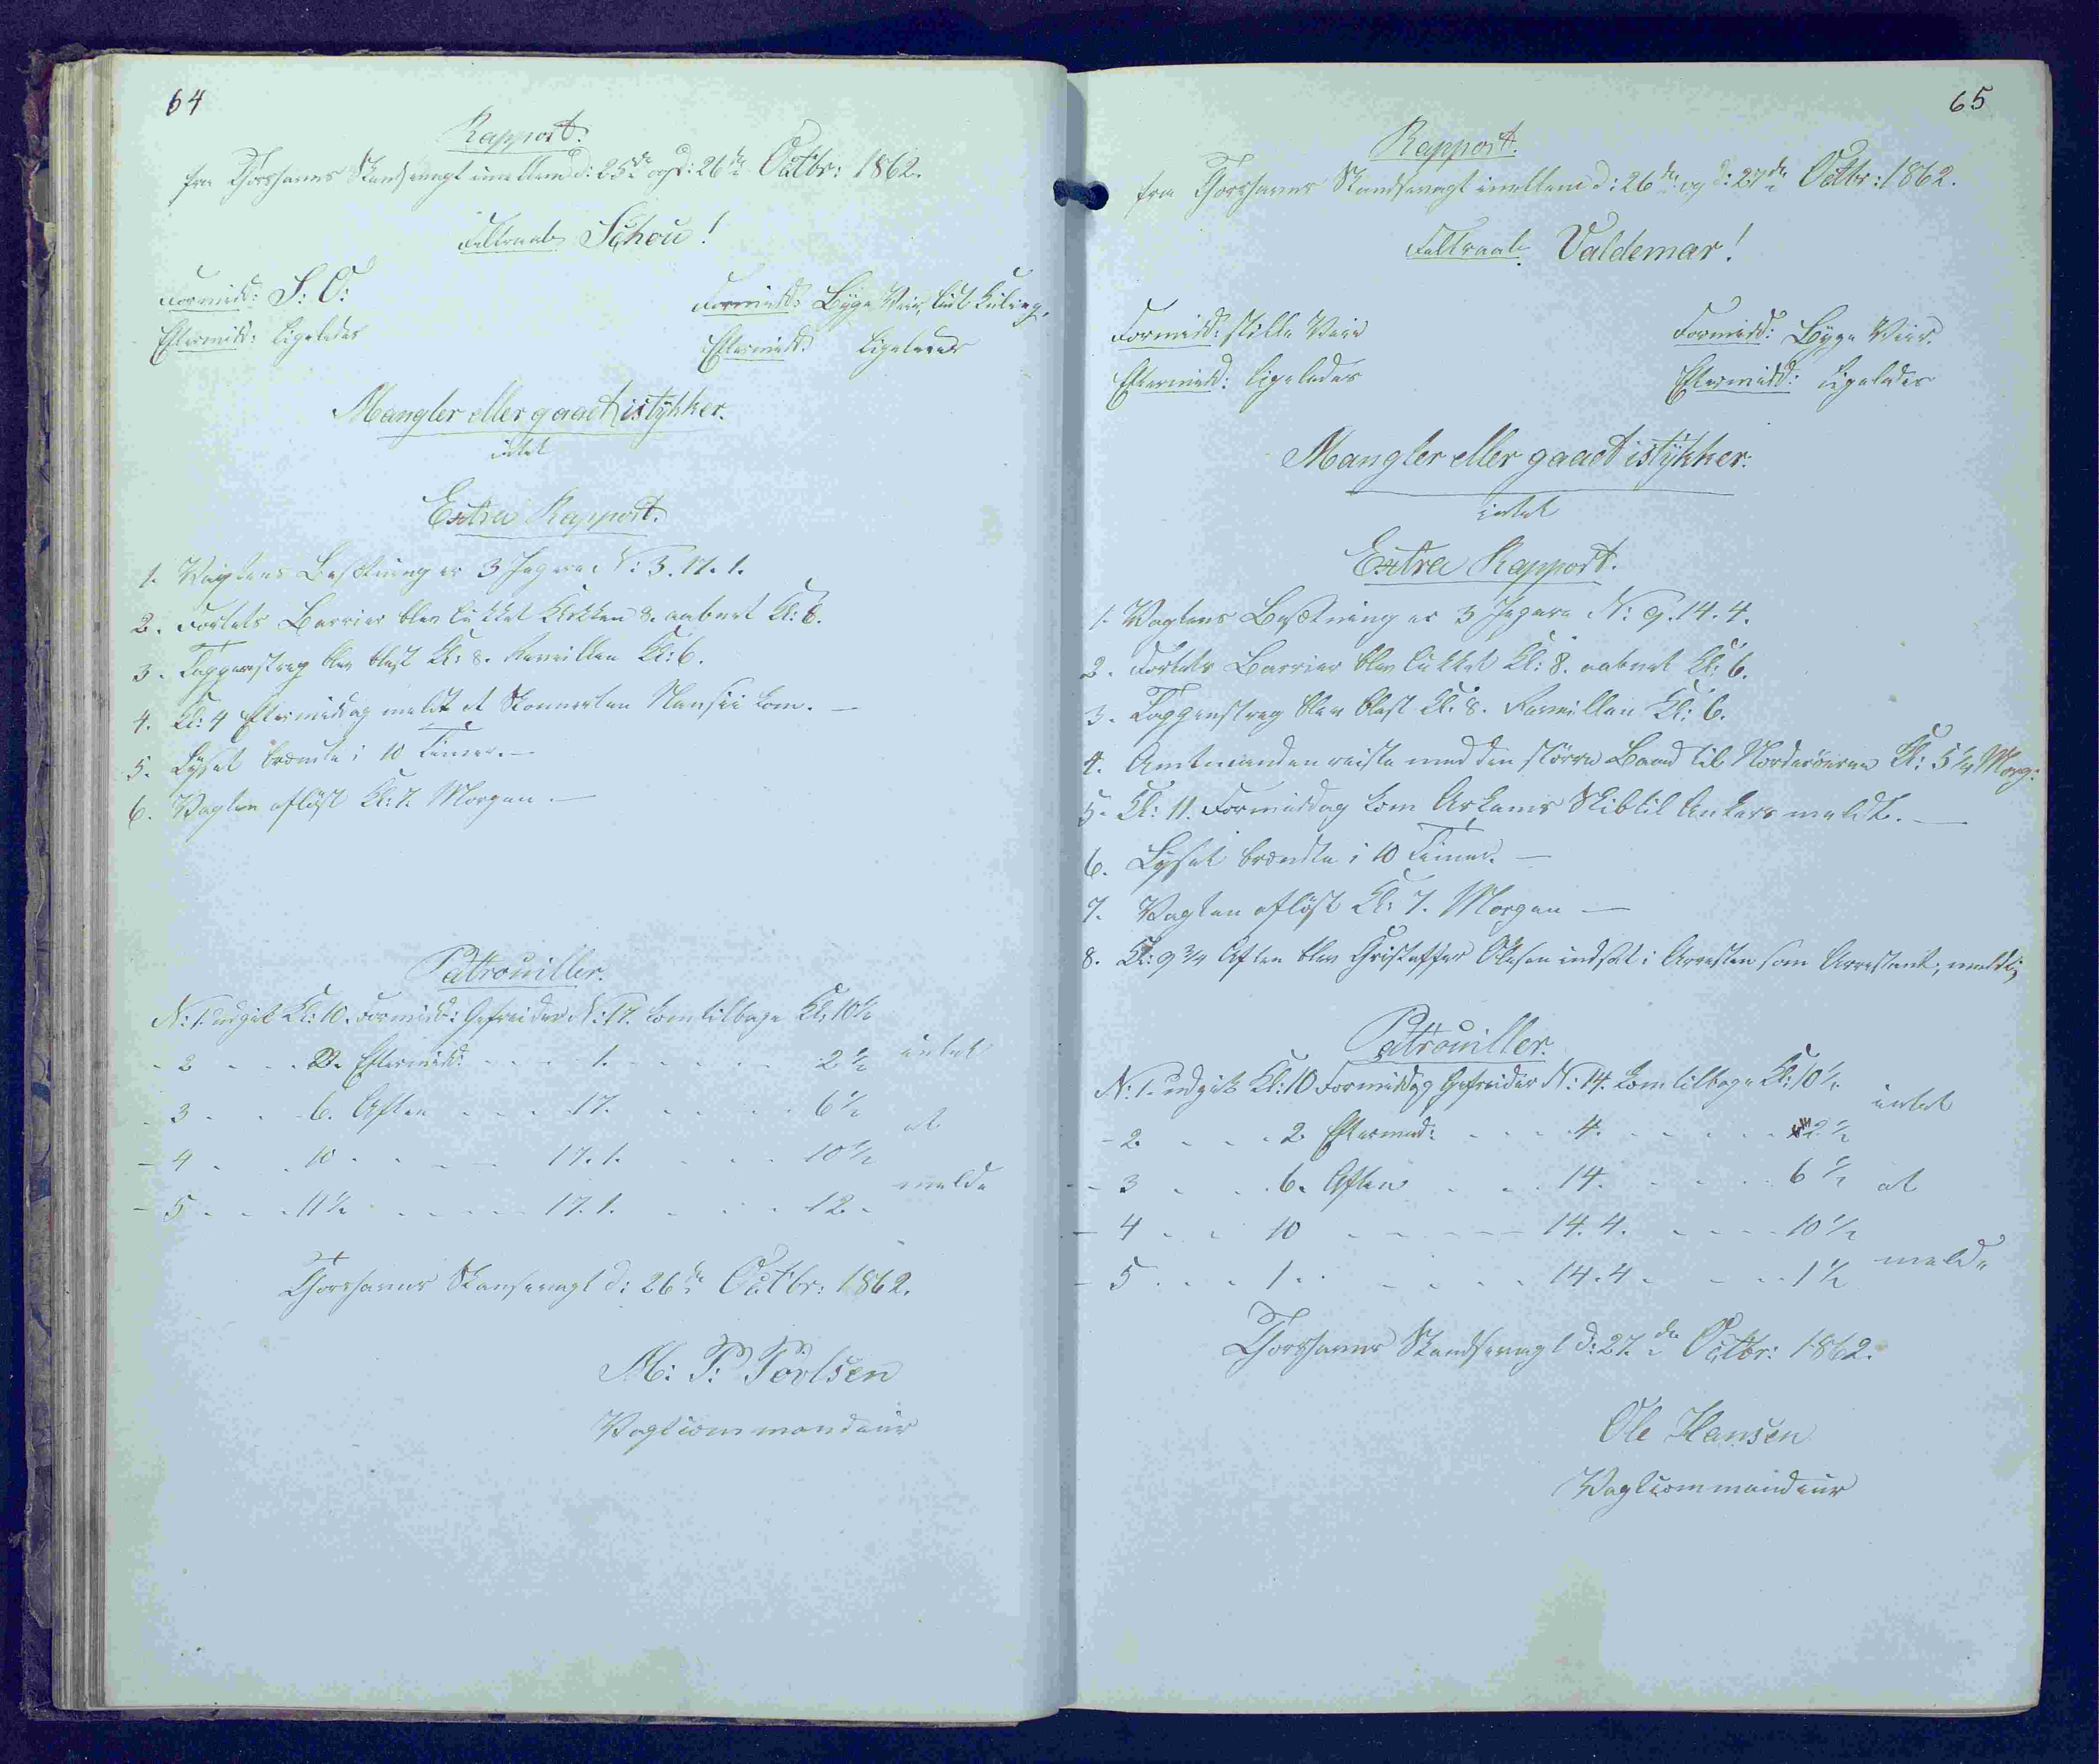 64
Rapport.
fra Thorshavns Skandsevagt imellem d: 25de og d: 26de Octbr: 1862.
Feltraab Schou!
Formidd: S: O:
Eftermidd: ligeledes
Formidd: Byge Veir, lidt Kuling,
Eftermidd: ligeledes
Mangler eller gaaet istÿkker.
intet
Extra Rapport.
1. Vagtens Besætning er 3 Jægere N: 3. 17. 1.
2. Fortets Barrier blev lukket Klokken 8. aabnet Kl: 6.
3. Tappenstreg blev blæst Kl: 8. Reveillen Kl: 6.
4. Kl: 4 Eftermiddag meldt at Skonnerten kom. —
5. Lyset brændte i 10 Timer. —
6. Vagten afløst Kl: 7. Morgen. —
Patrouiller.
N: 1. udgik Kl: 10. Formidd: Gefreider N: 17. kom tilbage Kl: 10½
- 2 - - - 2. Eftermidd: - - - 1. - - - - - 2½ intet
- 3 - - - 6. Aften - - - 17. - - - - 6½ at
- 4 - - 10 - - - - - 17. 1. - - - - 10½
- 5 - - - 11½ - - - - - 17. 1. - - - 12. - melde
Thorshavns Skansevagt d: 26de Octbr: 1862.
M: P: Povlsen
Vagtcommandeur
65
Rapport.
fra Thorshavns Skandsevagt imellem d: 26de og d: 27de Octbr: 1862.
Feltraab Valdemar!
Formidd: stille Veir
Eftermidd: ligeledes
Formidd: Byge Veir.
Eftermidd: ligeledes
Mangler eller gaaet istÿkker.
intet
Extra Rapport.
1. Vagtens Besætning er 3 Jægere N: 9. 14. 4.
2. Fortets Barrier blev lukket Kl: 8. aabnet Kl: 6.
3. Tappenstreg blev blæst Kl: 8. Reveillen Kl: 6.
4. Amtmanden reiste med den större Baad til Norderöerne Kl: 5¼ Morg:
5. Kl: 11. Formiddag kom Skib til Ankers meldt. —
6. Lyset brændte i 10 Timer. —
7. Vagten afløst Kl: 7. Morgen —
8. Kl: 9¾ Aften blev Christoffer Olesen indsat i Arresten som Arrestant, meldt;
Patrouiller.
N: 1. udgik Kl: 10 Formiddag Gefreider N: 14. kom tilbage Kl: 10½
- 2. - - - 2 Eftermid: - - - 4. - - - - - 2½ intet
- 3 - - - 6. Aften - - - 14. - - - - 6½ at
- 4 - - 10 - - - - - 14. 4. - - - - 10½
- 5 - - - 1. - - - - - 14. 4 - - - - 1½ melde
Thorshavns Skandsevagt d: 27de Octbr: 1862.
Ole Hansen
Vagtcommandeur